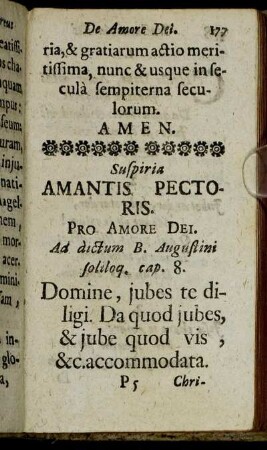 De Amore Dei. 177
ria, & gratiarum actio meri-
tissima, nunc & usque in se-
culà sempiterna secu-
lorum.
AMEN.
Suspiria
AMANTIS PECTO-
RIS.
PRO AMORE DEI.
Ad dictum B. Augustini
soliloq. cap. 8.
Domine, jubes te di-
ligi. Da quod jubes,
& jube quod vis,
&c. accommodata.
P 5 Chri-